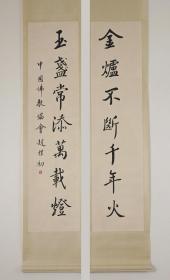 金爐不斷千年火
玉盞常添萬載燈
中國佛教協會趙樸初